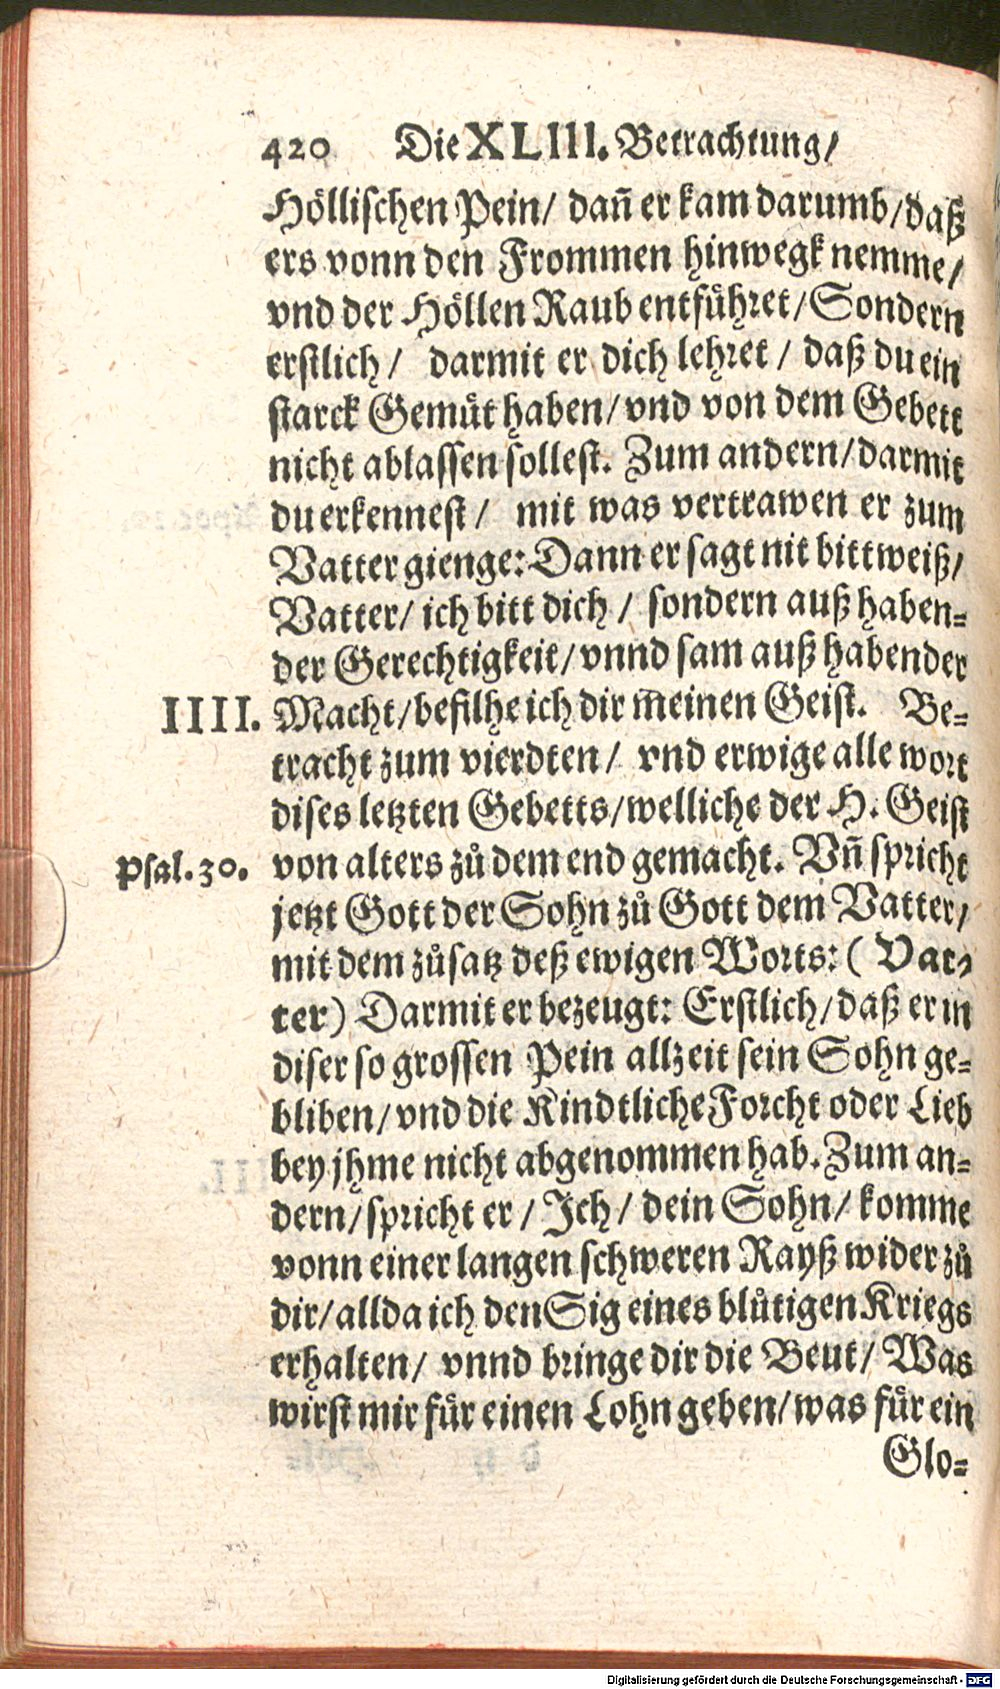 420 Die XLIII. Betrachtung/
Höllischen Pein/ dañ er kam darumb/daß
ers vonn den Frommen hinwegk nemme/
vnd der Höllen Raub entführet/Sondern
erstlich/ darmit er dich lehret/ daß du ein
starck Gemüt haben/vnd von dem Gebett
nicht ablassen sollest. Zum andern/darmit
du erkennest/ mit was vertrawen er zum
Vatter gienge: Dann er sagt nit bittweiß/
Vatter/ ich bitt dich/ sondern auß haben-
der Gerechtigkeit/vnnd sam auß habender
IIII. Macht/befilhe ich dir meinen Geist. Be-
tracht zum vierdten/ vnd erwige alle wort
dises letzten Gebetts/welliche der H. Geist
Psal.30. von alters zů dem end gemacht. Vñ spricht
jetzt Gott der Sohn zů Gott dem Vatter/
mit dem zůsatz deß ewigen Worts: (Vat-
ter) Darmit er bezeugt: Erstlich/daß er in
diser so grossen Pein allzeit sein Sohn ge-
bliben/vnd die Kindtliche Forcht oder Lieb
bey jhme nicht abgenommen hab. Zum an-
dern/spricht er/ Ich/ dein Sohn/ komme
vonn einer langen schweren Rayß wider zů
dir/allda ich den Sig eines blůtigen Kriegs
erhalten/ vnnd bringe dir die Beut/ Was
wirst mir für einen Lohn geben/was für ein
Glo-
Digitalisierung gefördert durch die Deutsche Forschungsgemeinschaft - DFG